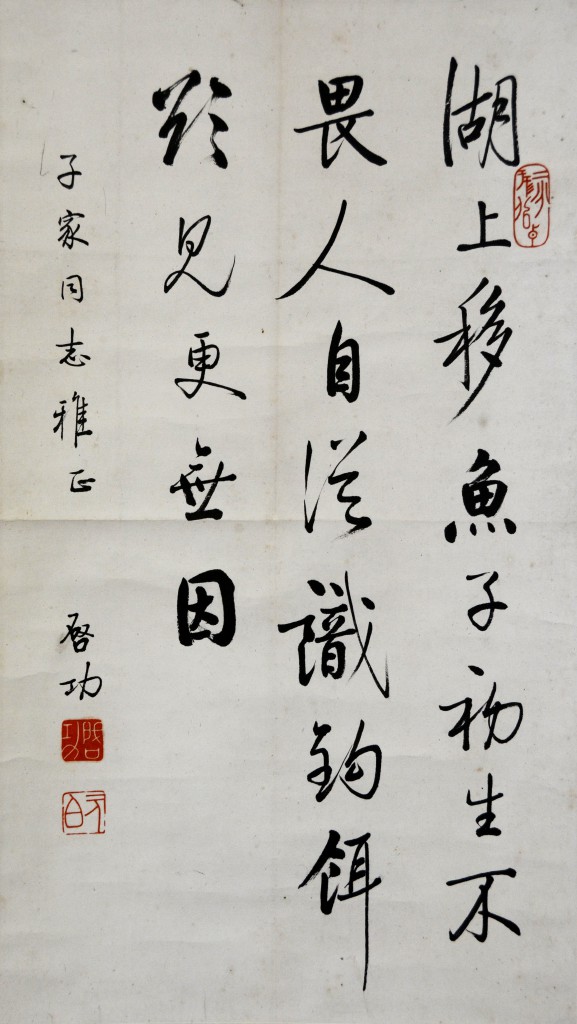 湖上移魚子初生不
畏人自從識鈎餌
欲見更無因
子家同志雅正
啓功
啓功
元白